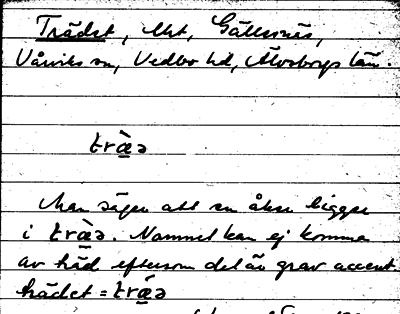 Trädet, Mst, Gällesnäs,
Vårviks sn, Vedbo hd, Älvsborgs län.
træ̀ə
Man säger att en åker ligger
i træ̀ə. Namnet kan ej komma
av träd eftersom det är grav accent.
trädet = trǽə